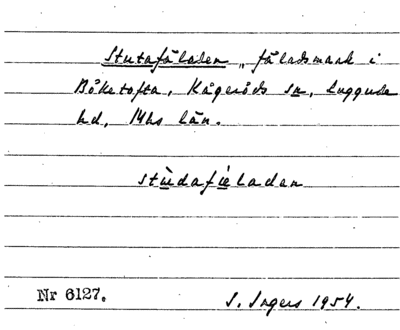 Stutafäladen, fäladsmark i
Böketofta, Kågeröds sn, Luggude
hd, Mhs län.
stùdafíeladen
Nr 6127.
S. Ingers 1954.